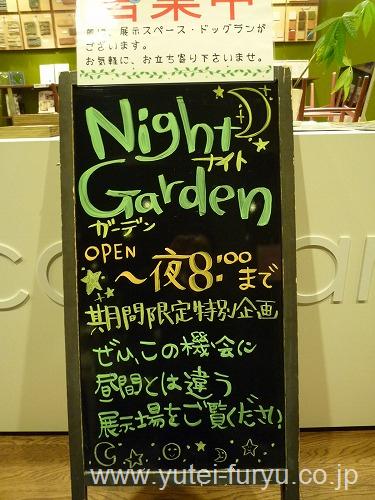 営業中
展示スペース・ドッグランが
ございます。
お気軽に、お立ち寄り下さいませ。
Night
ナイト
Garden
ガーデン
OPEN
～夜8:00まで
期間限定特別企画
ぜひ、この機会に
昼間とは違う
展示場をご覧ください
www.yutei-furyu.co.jp